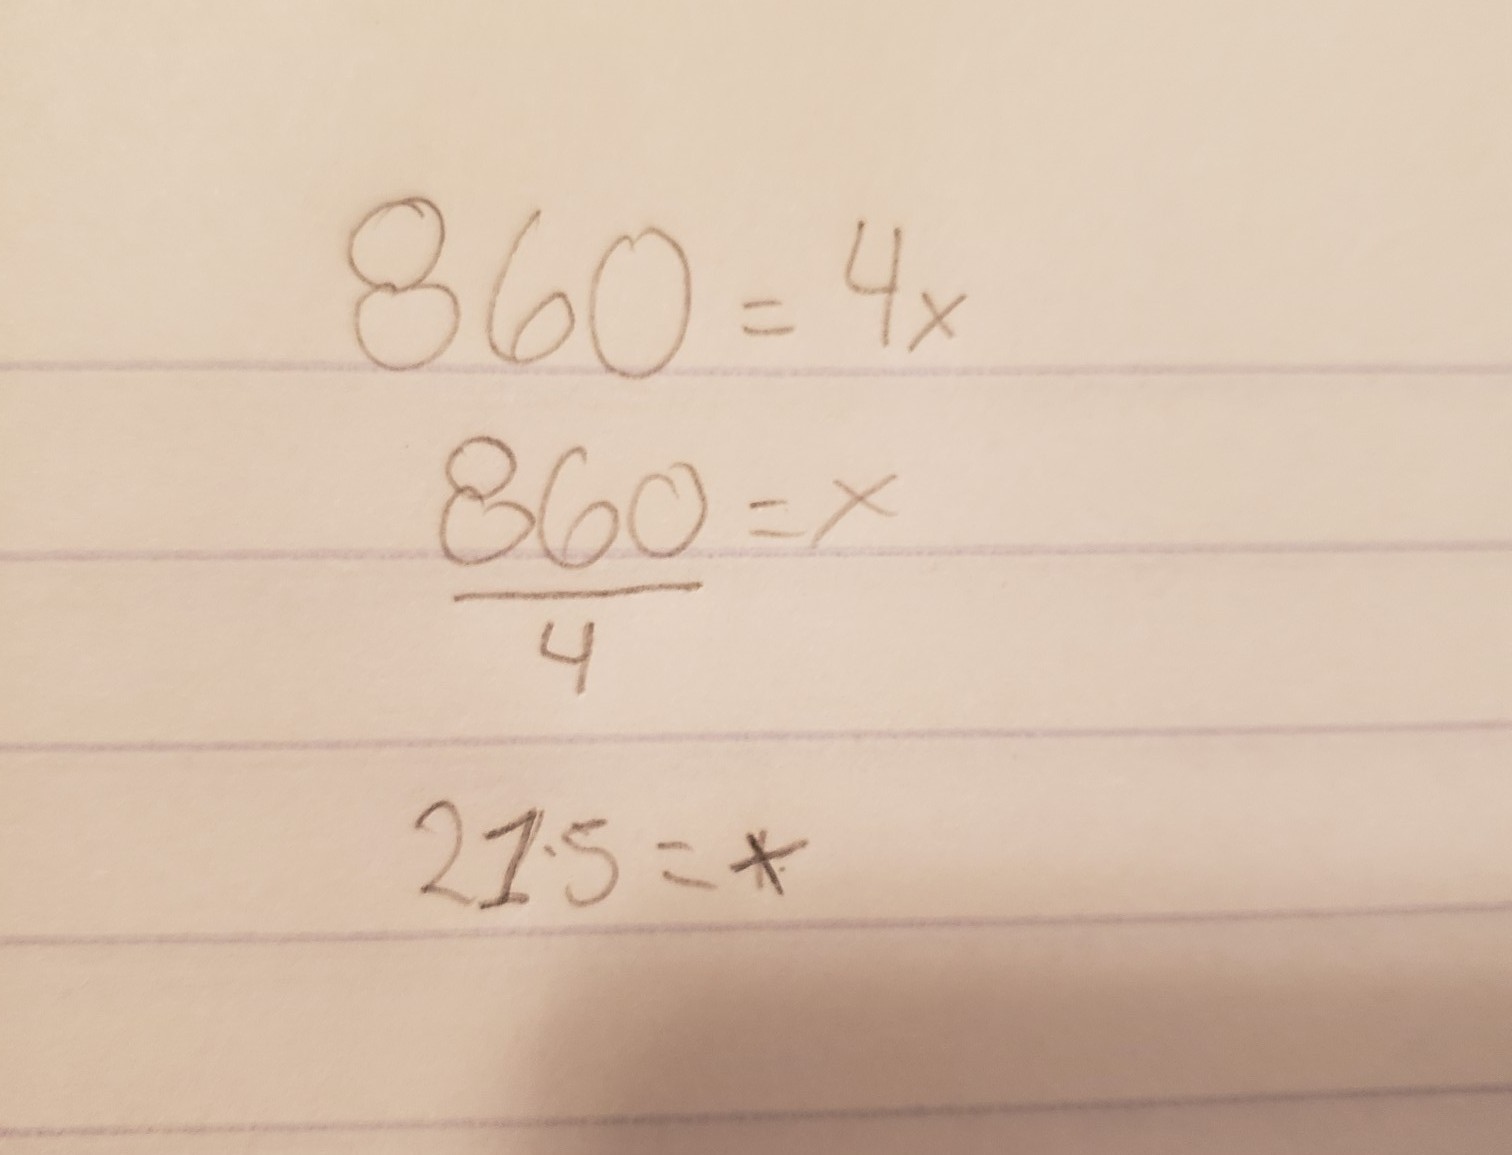 860 = 4x
860 = x
4
21.5 = x